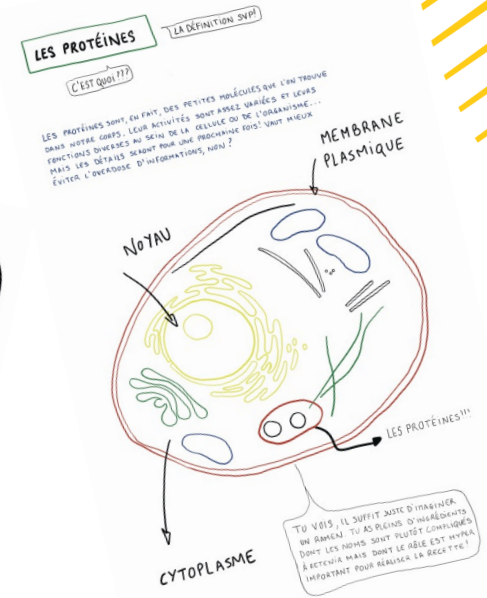 LES PROTÉINES
LA DÉFINITION SVP!
C'EST QUOI???
LES PROTÉINES SONT, EN FAIT, DES PETITES MOLÉCULES QUE L'ON TROUVE
DANS NOTRE CORPS. LEUR ACTIVITÉS SONT ASSEZ VARIÉES ET LEURS
FONCTIONS DIVERSES AU SEIN DE LA CELLULE OU DE L'ORGANISME...
MAIS LES DÉTAILS SERONT POUR UNE PROCHAINE FOIS! VAUT MIEUX
ÉVITER L'OVERDOSE D'INFORMATIONS, NON?
MEMBRANE
PLASMIQUE
NOYAU
LES PROTÉINES!!!
CYTOPLASME
TU VOIS, IL SUFFIT JUSTE D'IMAGINER
UN RAMEN. TU AS PLEINS D'INGRÉDIENTS
DONT LES NOMS SONT PLUTÔT COMPLIQUÉS
À RETENIR MAIS DONT LE RÔLE EST HYPER
IMPORTANT POUR RÉALISER LA RECETTE!